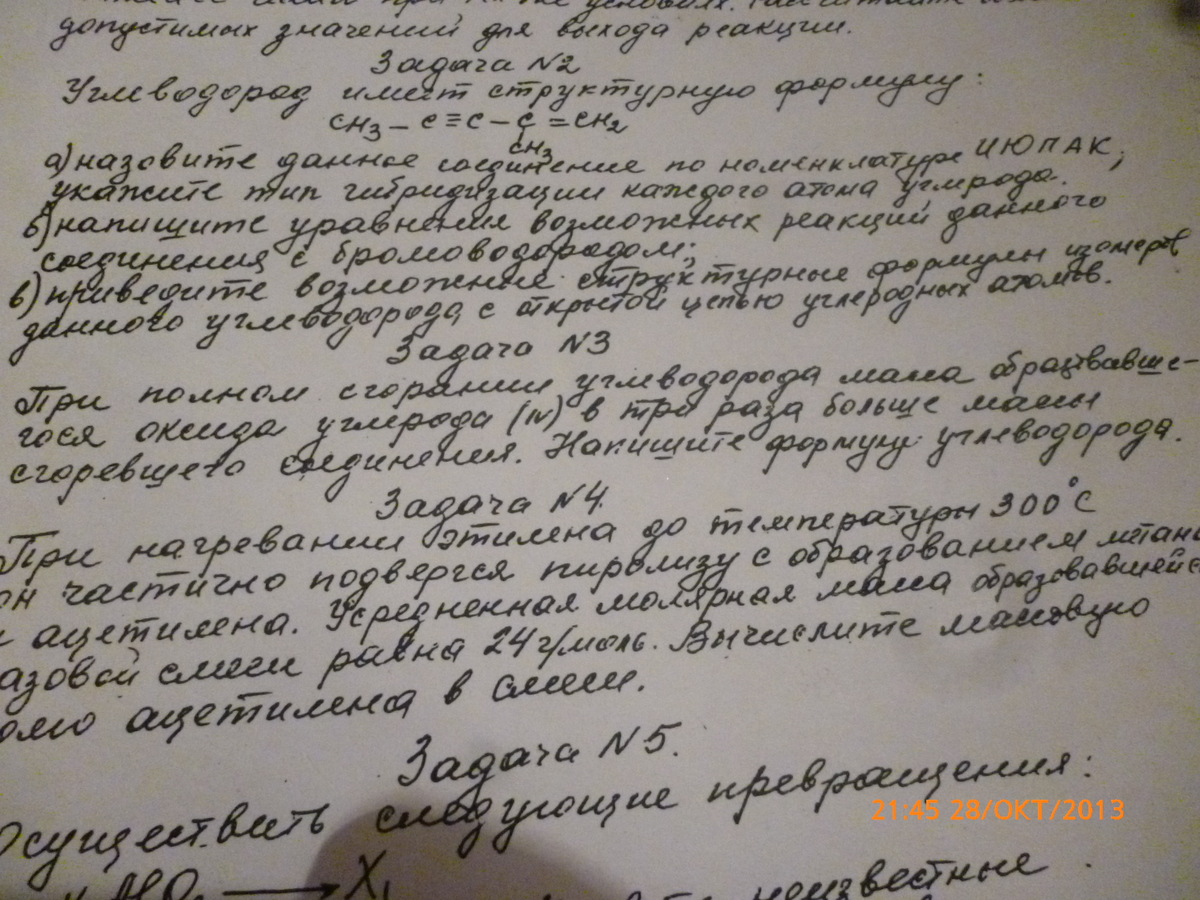 при условиях. Рассчитайте
допустимых значений для выхода реакции.
Задача N2
Углеводород имеет структурную формулу:
CH₃ – C ≡ C – C = CH₂
CH₃
а) назовите данное соединение по номенклатуре ИЮПАК;
укажите тип гибридизации каждого атома углерода.
б) напишите уравнения возможных реакций данного
соединения с бромоводородом;
в) приведите возможные структурные формулы изомеров
данного углеводорода с открытой цепью углеродных атомов.
Задача N3
При полном сгорании углеводорода масса образовавше-
гося оксида углерода (IV) в три раза больше массы
сгоревшего соединения. Напишите формулу углеводорода.
Задача N4.
При нагревании этилена до температуры 300°С
он частично подвергся пиролизу с образованием метана
и ацетилена. Усредненная молярная масса образовавшейс
азовой смеси равна 24 г/моль. Вычислите массовую
олю ацетилена в смеси.
Задача N5.
Осуществить следующие превращения:
→ X₁
неизвестные
21:45 28/ОКТ/2013